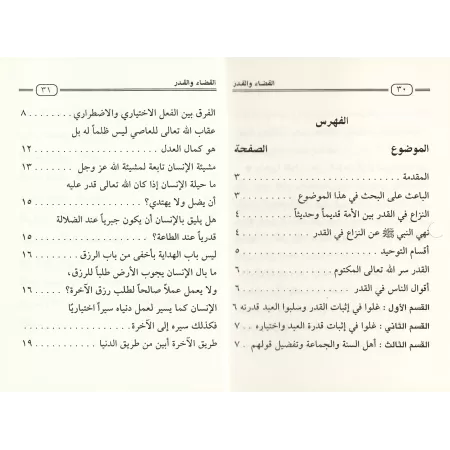 القضاء والقدر
٣٠
الفهرس
الموضوع الصفحة
المقدمة ............ ٣
الباعث على البحث في هذا الموضوع ........ ٣
النزاع في القدر بين الأمة قديماً وحديثاً ........ ٤
نهي النبي ﷺ عن النزاع في القدر ........ ٤
أقسام التوحيد ............ ٥
القدر سر الله تعالى المكتوم ............ ٦
أقوال الناس في القدر ............ ٦
القسم الأول : غلوا في إثبات القدر وسلبوا العبد قدرته ٦
القسم الثاني : غلوا في إثبات قدرة العبد واختياره .. ٧
القسم الثالث : أهل السنة والجماعة وتفضيل قولهم . ٧
القضاء والقدر
٣١
الفرق بين الفعل الاختياري والاضطراري ........ ٨
عقاب الله تعالى للعاصي ليس ظلماً له بل
هو كمال العدل ............ ١٢
مشيئة الإنسان تابعة لمشيئة الله عز وجل ........ ١٣
ما حيلة الإنسان إذا كان الله تعالى قدر عليه
أن يضل ولا يهتدي؟ ............ ١٥
هل يليق بالإنسان أن يكون جبرياً عند الضلالة
قدرياً عند الطاعة؟ ............ ١٥
ليس باب الهداية بأخفى من باب الرزق ........ ١٦
ما بال الإنسان يجوب الأرض طلباً للرزق،
ولا يعمل عملاً صالحاً لطلب رزق الآخرة؟ .... ١٦
الإنسان كما يسير لعمل دنياه سيراً اختيارياً
فكذلك سيره إلى الآخرة ............
طريق الآخرة أبين من طريق الدنيا ........ ١٩